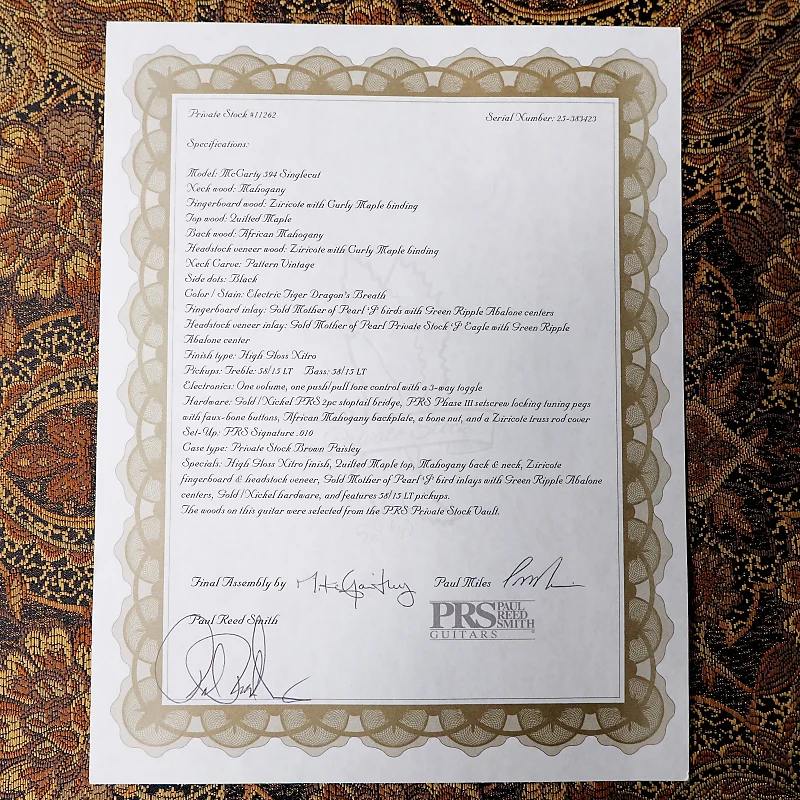 Private Stock #11262 Serial Number: 25-383423
Specifications:
Model: McCarty 594 Singlecut
Neck wood: Mahogany
Fingerboard wood: Ziricote with Curly Maple binding
Top wood: Quilted Maple
Back wood: African Mahogany
Headstock veneer wood: Ziricote with Curly Maple binding
Neck Carve: Pattern Vintage
Side dots: Black
Color / Stain: Electric Tiger Dragon's Breath
Fingerboard inlay: Gold Mother of Pearl 'P' birds with Green Ripple Abalone centers
Headstock veneer inlay: Gold Mother of Pearl Private Stock 'P' Eagle with Green Ripple
Abalone center
Finish type: High Gloss Nitro
Pickups: Treble: 58/15 LT Bass: 58/15 LT
Electronics: One volume, one push/pull tone control with a 3-way toggle
Hardware: Gold / Nickel PRS 2pc stoptail bridge, PRS Phase III setscrew locking tuning pegs
with faux-bone buttons, African Mahogany backplate, a bone nut, and a Ziricote truss rod cover
Set-Up: PRS Signature .010
Case type: Private Stock Brown Paisley
Specials: High Gloss Nitro finish, Quilted Maple top, Mahogany back & neck, Ziricote
fingerboard & headstock veneer, Gold Mother of Pearl 'P' bird inlays with Green Ripple Abalone
centers, Gold / Nickel hardware, and features 58/15 LT pickups.
The woods on this guitar were selected from the PRS Private Stock Vault.
Final Assembly by Paul Miles
Paul Reed Smith
PRS PAUL
REED
SMITH
GUITARS